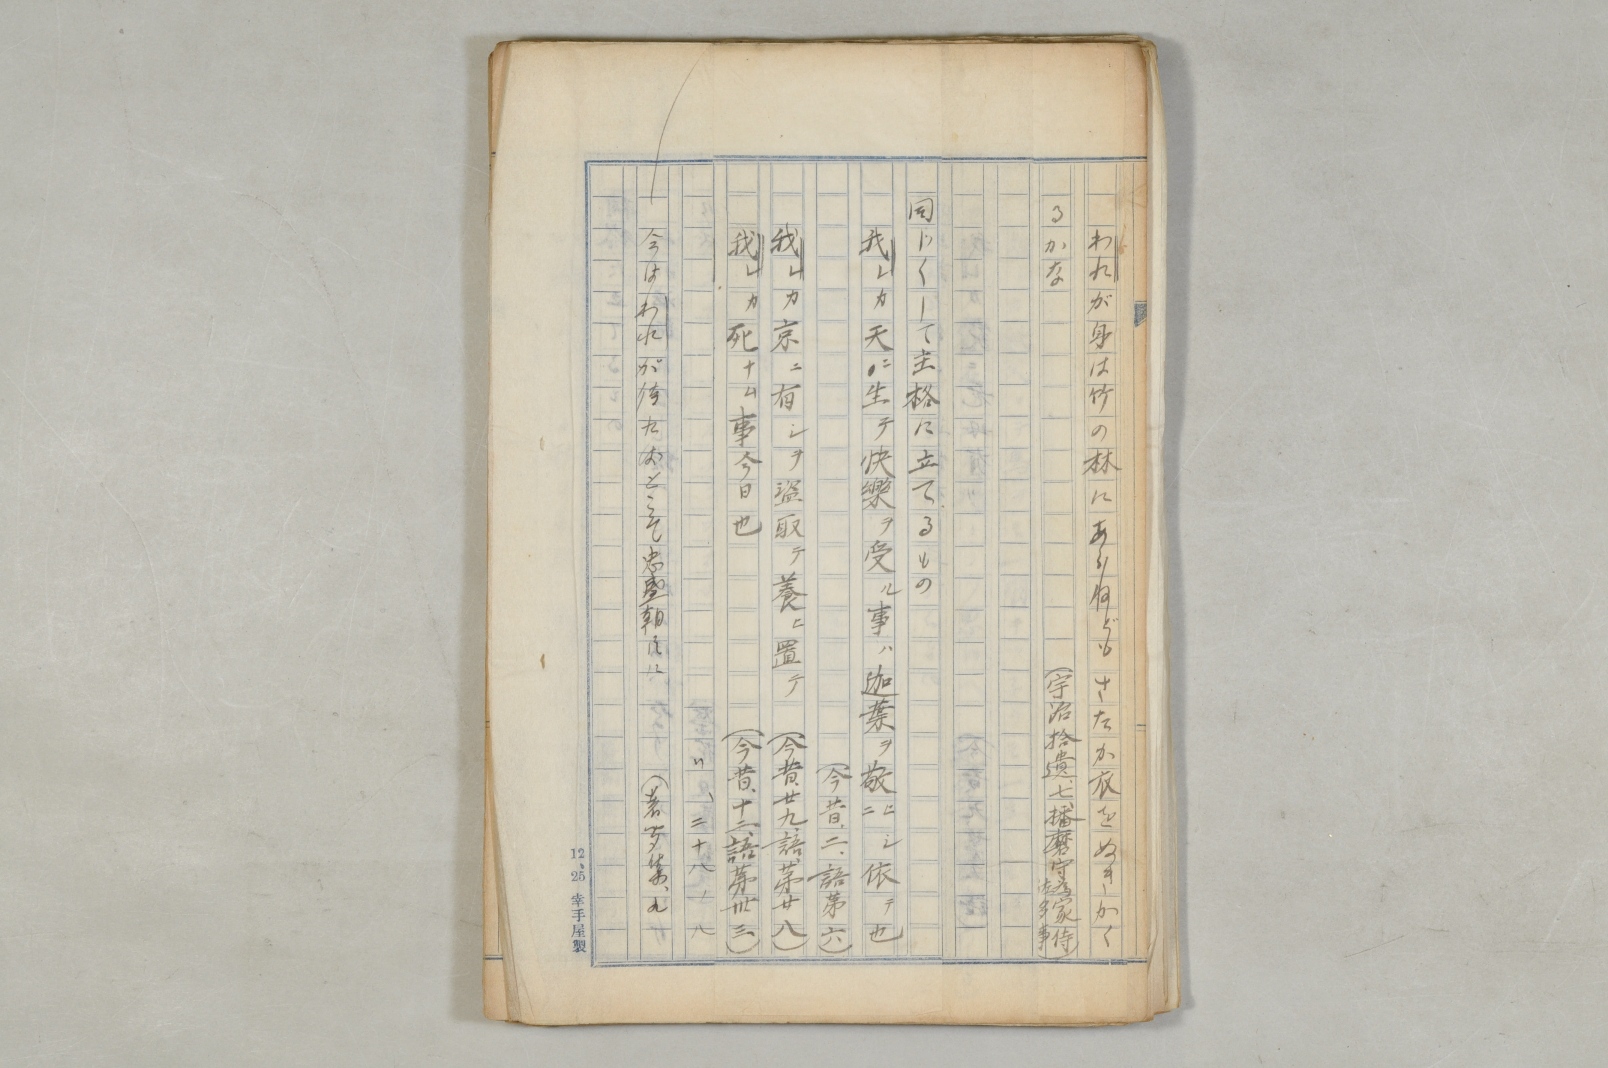 われが身は竹の林にあらねどもさたか衣をぬきかく
るかな
(宇治拾遺、七、播磨守為家侍佐多事)
同じくして主格に立てるもの
我レカ天ニ生テ快樂ヲ受ル事ハ迦葉ヲ敬ヒシニ依テ也
(今昔、二、語第六)
我レカ京ニ有シヲ盗取テ養ヒ置テ(今昔、廿九、語第廿八)
我レカ死ナム事今日也(今昔、十二、語第卅三)
〃、二十八ノ八
今はわれが侍たはばこそ忠盛朝臣に(著聞集、九
12、25 幸手屋製